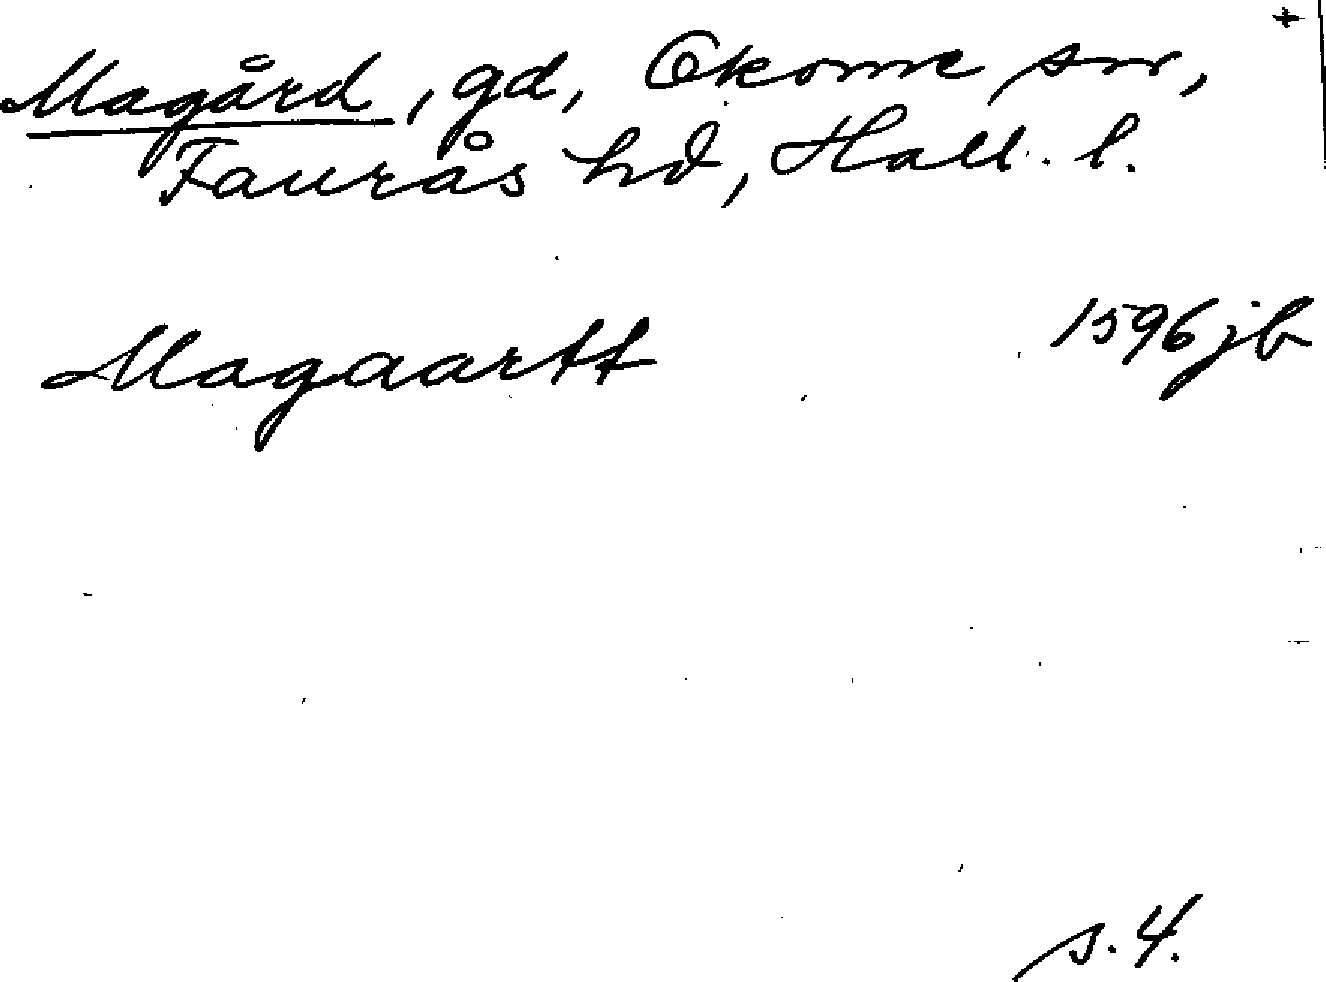 +
Magård, gd, Okome sn,
Faurås hd, Hall. l.
Magaartt 1596 jb
s. 4.